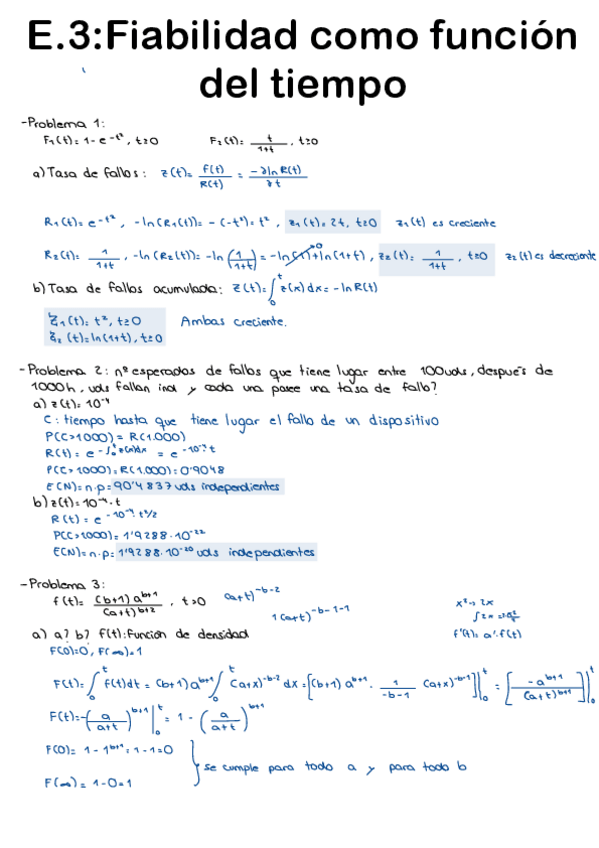 E.3:Fiabilidad como función
del tiempo
-Problema 1:
F₁(t)= 1- e^-t², t≥0 F₂(t)= t/(1+t), t≥0
a) Tasa de fallos: z(t)= f(t)/R(t) = -∂lnR(t)/∂t
R₁(t)= e^-t², -ln(R₁(t))= -(-t²)= t², z₁(t)= 2t, t≥0 z₁(t) es creciente
R₂(t)= 1/(1+t), -ln(R₂(t))= -ln(1/(1+t)) = -ln(1)+ln(1+t), z₂(t)= 1/(1+t), t≥0 z₂(t) es decreciente
b) Tasa de fallos acumulada: Z(t)= ∫₀^t z(x)dx = -lnR(t)
Z₁(t)= t², t≥0 Ambas creciente.
Z₂(t)= ln(1+t), t≥0
-Problema 2: nº esperados de fallos que tiene lugar entre 100uds, después de
1000h, uds fallan ind y cada una posee una tasa de fallo?
a) z(t)= 10^-4
C: tiempo hasta que tiene lugar el fallo de un dispositivo
P(C>1000) = R(1.000)
R(t)= e^-∫₀^t z(x)dx = e^-10^-4·t
P(C>1000)= R(1.000)= 0'9048
E(N)= n·p= 90'4837 uds independientes
b) z(t)= 10^-4·t
R(t)= e^-10^-4·t²/2
P(C>1000)= 1'9288·10^-22
E(N)= n·p= 1'9288·10^-20 uds independientes
-Problema 3:
f(t)= (b+1)a^b+1/(a+t)^b+2, t>0 (a+t)^-b-2
1(a+t)^-b-1-1
x²→ 2x
a) a? b? f(t): Función de densidad f'(t)= a'·f(t)
F(0)=0, F(∞)=1
F(t)= ∫₀^t f(t)dt = (b+1)a^b+1 ∫₀^t (a+x)^-b-2 dx = [(b+1)a^b+1 · 1/(-b-1) (a+x)^-b-1]₀^t = [-a^b+1/(a+t)^b+1]₀^t
F(t)= -(a/(a+t))^b+1 |₀^t = 1 - (a/(a+t))^b+1
F(0)= 1 - 1^b+1 = 1-1=0
se cumple para todo a y para todo b
F(∞)= 1-0=1